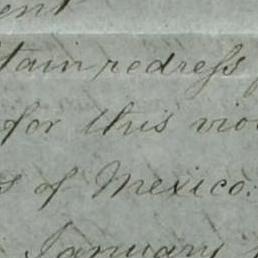 ent
tain redress
for this vio
s of Mexico.
January